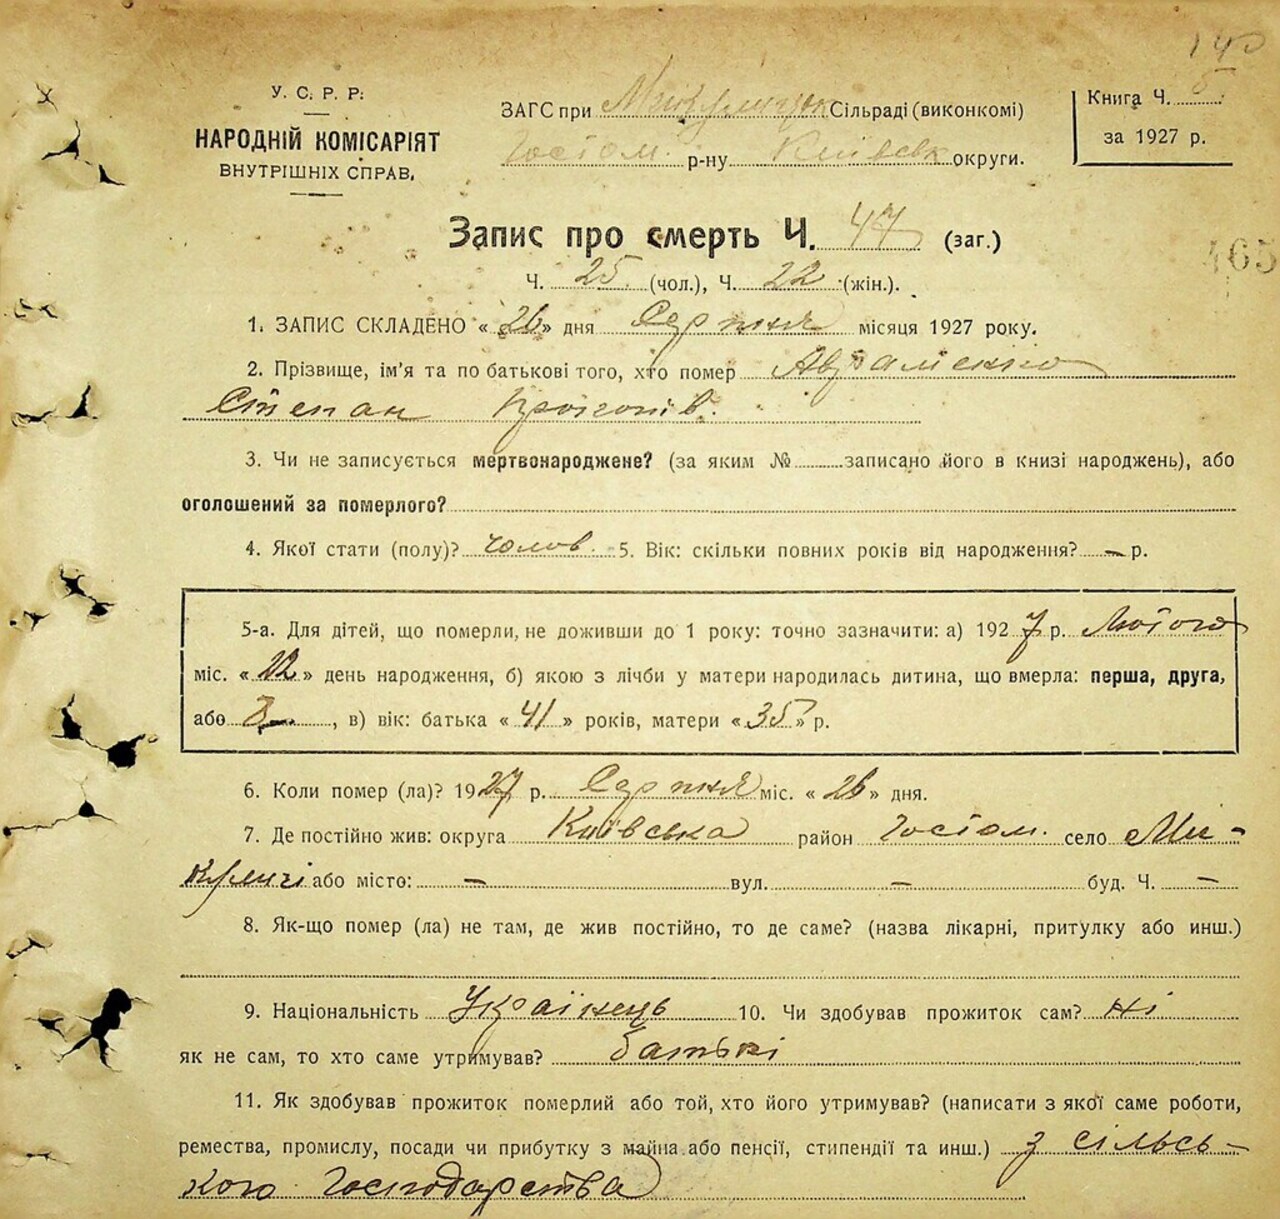 140
У. С. Р. Р.
НАРОДНІЙ КОМІСАРІЯТ
ВНУТРІШНІХ СПРАВ.
ЗАГС при Микулицьк Сільраді (виконкомі)
Гостом. р-ну Київськ округи.
Книга Ч. 5
за 1927 р.
Запис про смерть Ч. 47 (заг.)
465
Ч. 25 (чол.), Ч. 22 (жін.).
1. ЗАПИС СКЛАДЕНО « 26 » дня Серпня місяця 1927 року.
2. Прізвище, ім'я та по батькові того, хто помер Авраменко
Степан
3. Чи не записується мертвонароджене? (за яким № записано його в книзі народжень), або
оголошений за померлого?
4. Якої стати (полу)? чолов. 5. Вік: скільки повних років від народження? — р.
5-а. Для дітей, що померли, не доживши до 1 року: точно зазначити: а) 1927 р. Лютого
міс. « 22 » день народження, б) якою з лічби у матери народилась дитина, що вмерла: перша, друга,
або , в) вік: батька « 41 » років, матери « 35 » р.
6. Коли помер (ла)? 1927 р. Серпня міс. « 26 » дня.
7. Де постійно жив: округа Київська район Гостом. село Ми-
куличі або місто: — вул. — буд. Ч. —
8. Як-що помер (ла) не там, де жив постійно, то де саме? (назва лікарні, притулку або инш.)
9. Національність Українець 10. Чи здобував прожиток сам? ні
як не сам, то хто саме утримував? батькі
11. Як здобував прожиток померлий або той, хто його утримував? (написати з якої саме роботи,
ремества, промислу, посади чи прибутку з майна або пенсії, стипендії та инш.) з сільсь-
кого Господарства